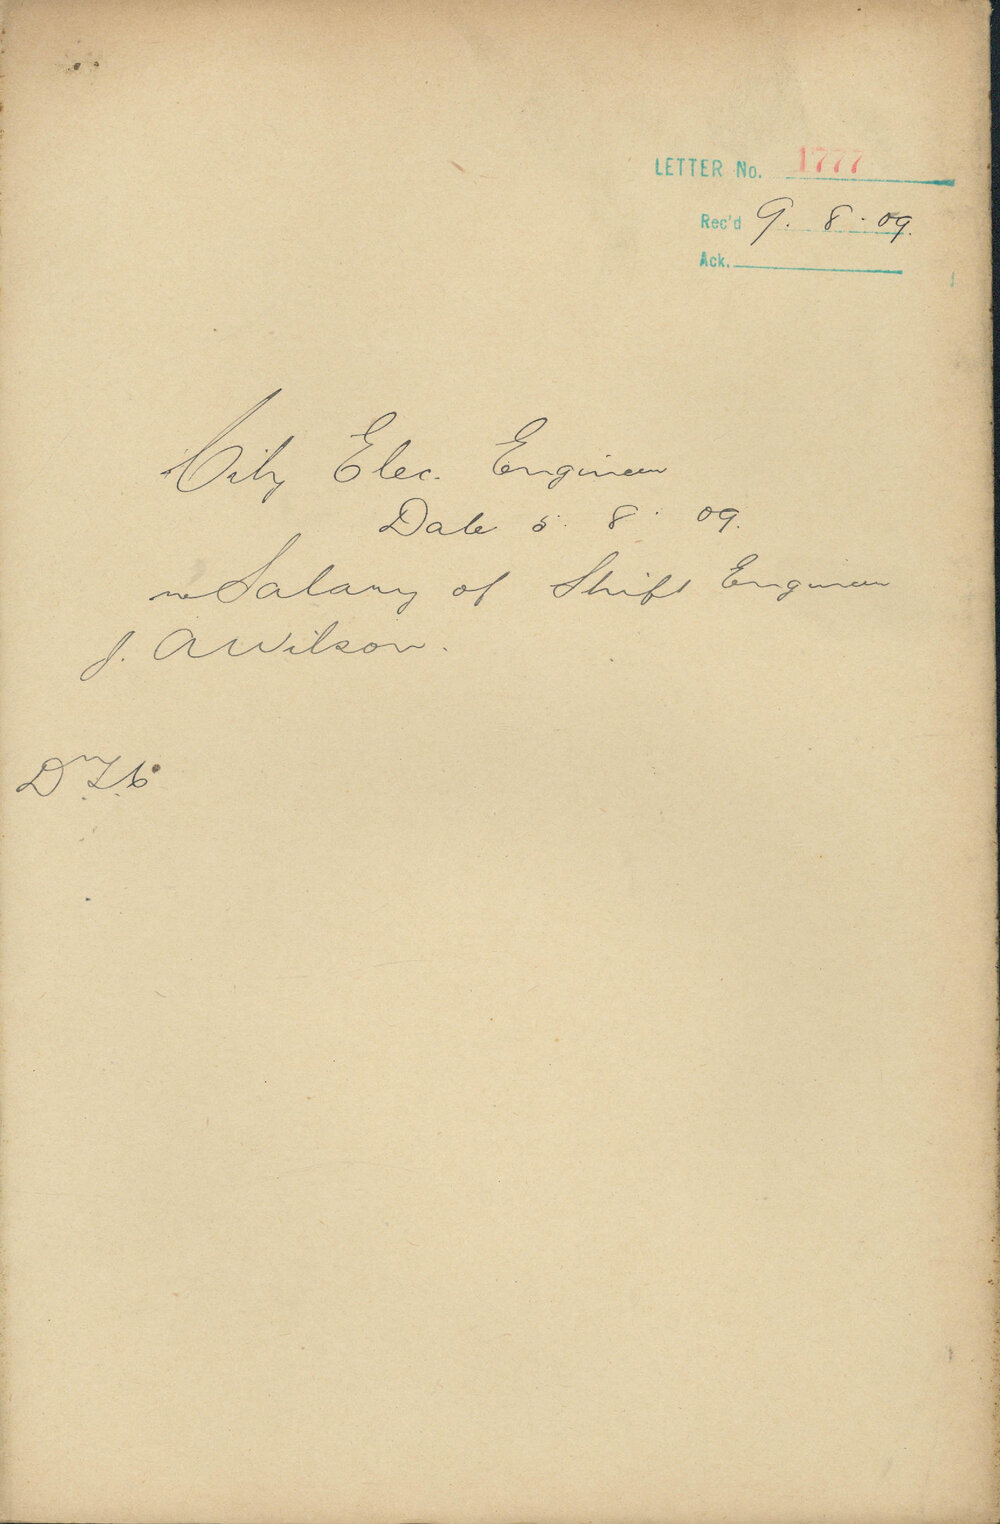 LETTER No. 1777
Rec'd 9. 8. 09.
Ack.
City Elec. Engineer
Date 5. 8. 09.
re Salary of Shift Engineer
J. A Wilson.